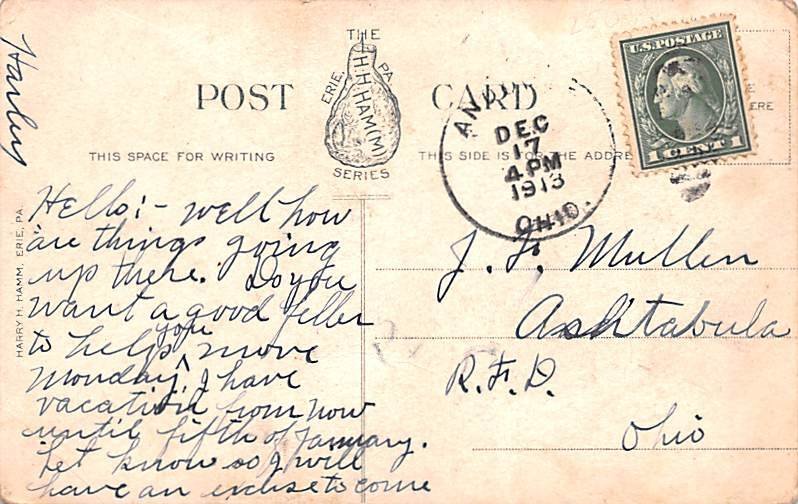 Harley
THE
H.H.HAM(M)
ERIE, PA
SERIES
POST CARD
THIS SPACE FOR WRITING
THIS SIDE IS FOR THE ADDRE
ERE
U.S. POSTAGE
1 CENT 1
AN
DEC
17
4 PM
1913
OHIO.
HARRY H. HAMM, ERIE, PA.
Hello:- well how
are things going
up there. Do you
want a good feller
to help you move
Monday, I have
vacation from now
until fifth of January.
Let know so I will
have an excuse to come
J. F. Mullen
Ashtabula
R.F.D.
Ohio